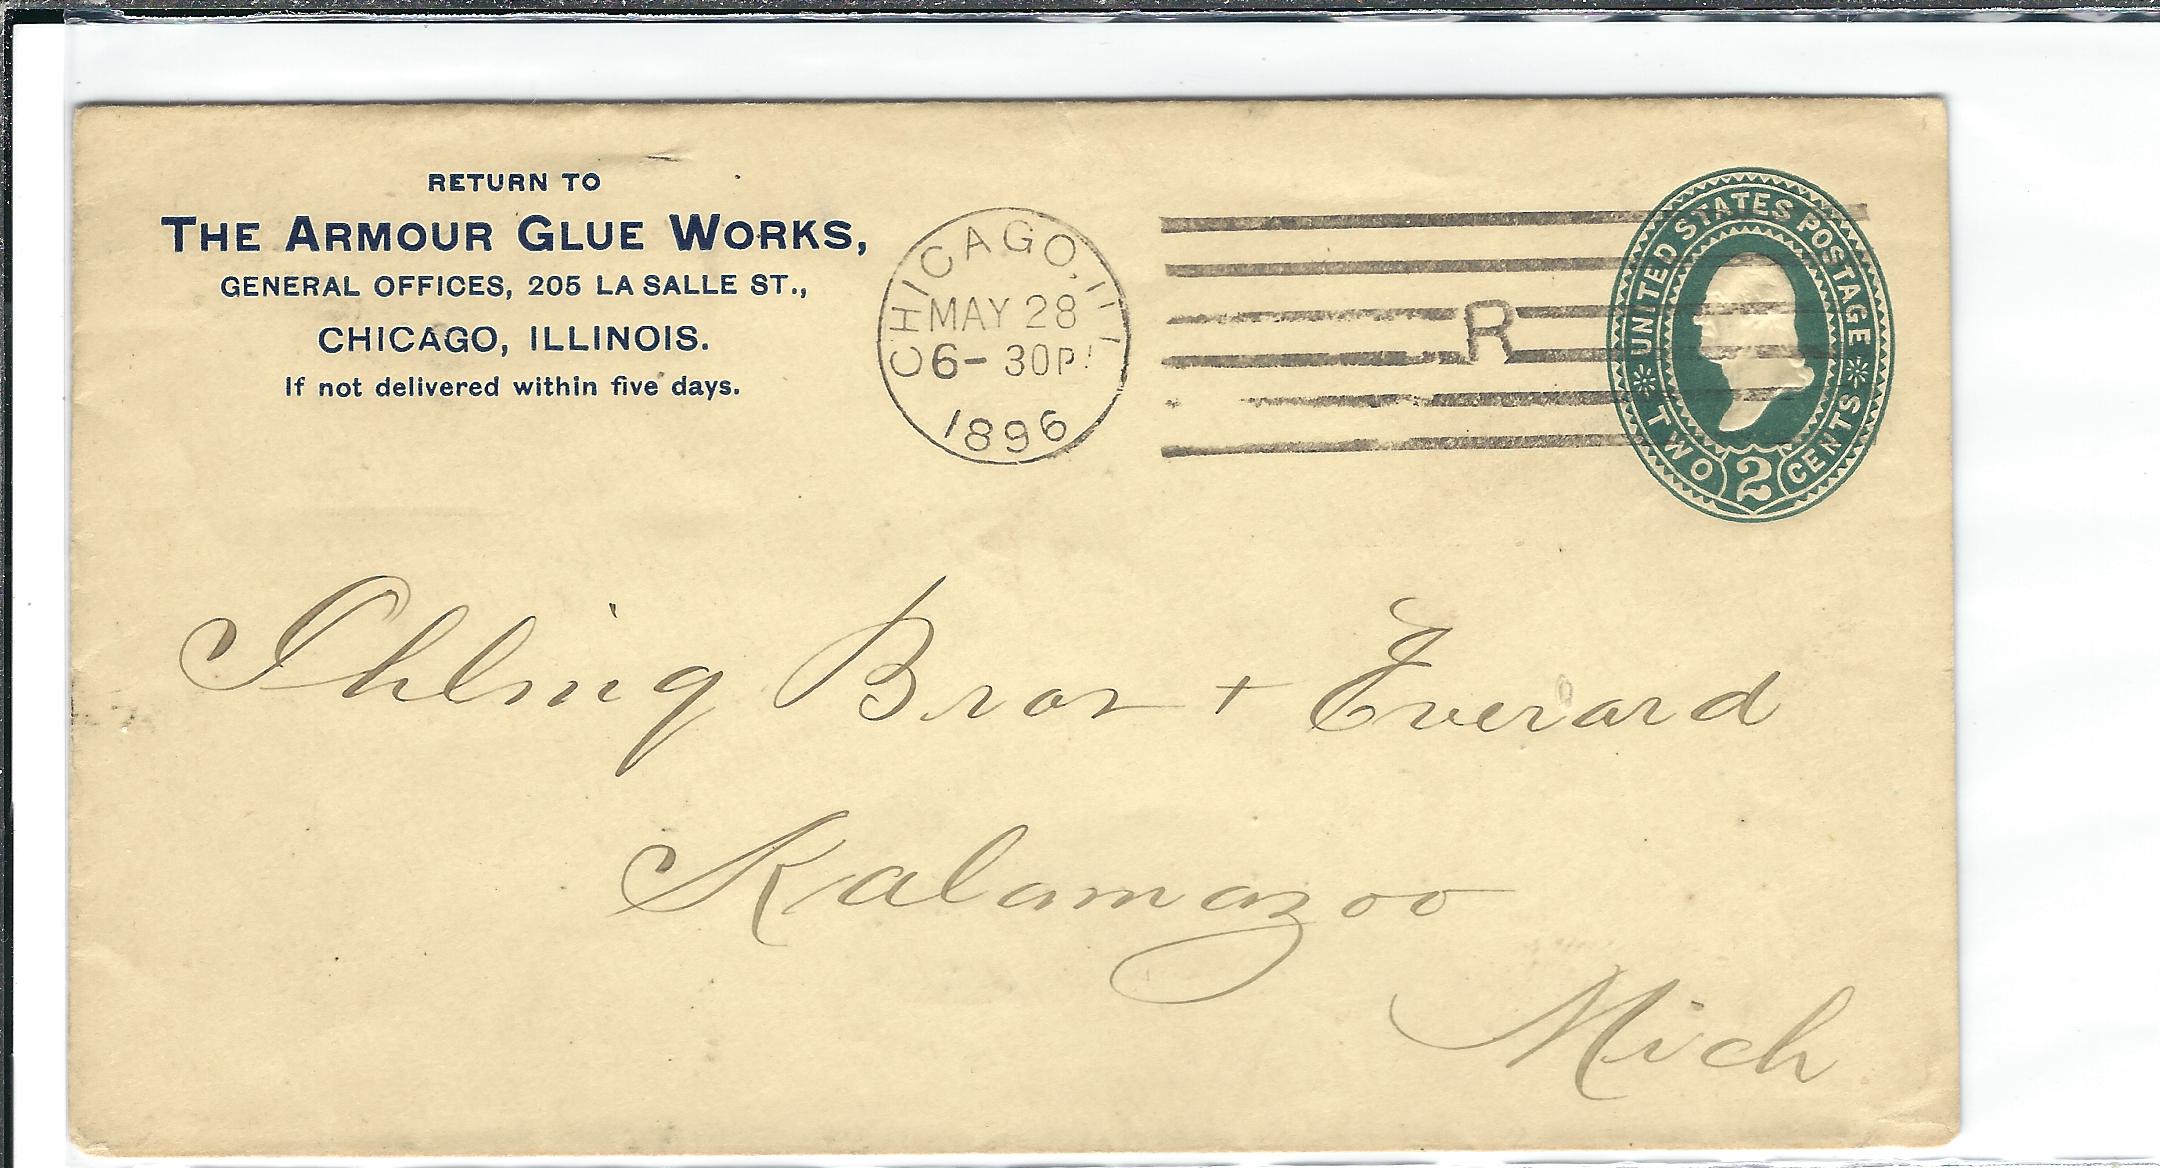 RETURN TO
THE ARMOUR GLUE WORKS,
GENERAL OFFICES, 205 LA SALLE ST.,
CHICAGO, ILLINOIS.
If not delivered within five days.
CHICAGO, ILL
MAY 28
6-30P
1896
R
UNITED STATES POSTAGE
TWO 2 CENTS
Ihling Bros + Everard
Kalamazoo
Mich